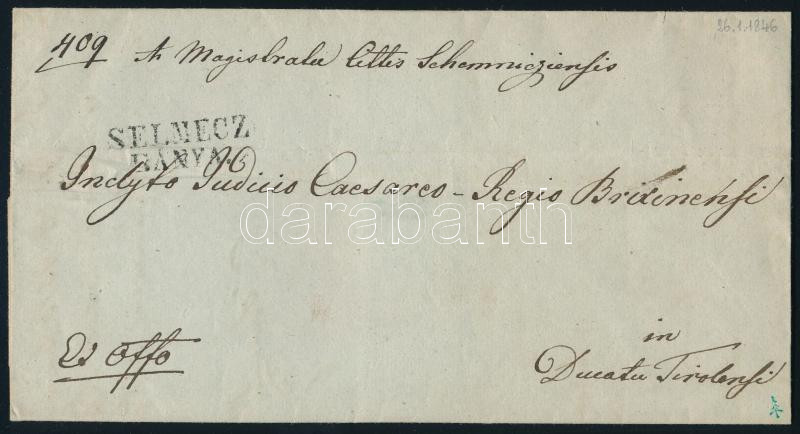 26.1.1846
409 A Magistratu Cittis Schemnicziensis
SELMECZ
BÁNYA
Inclyto Judicio Caesareo-Regio Brixinensi
darabanth
Ex offo
in
Ducatu Tirolensi